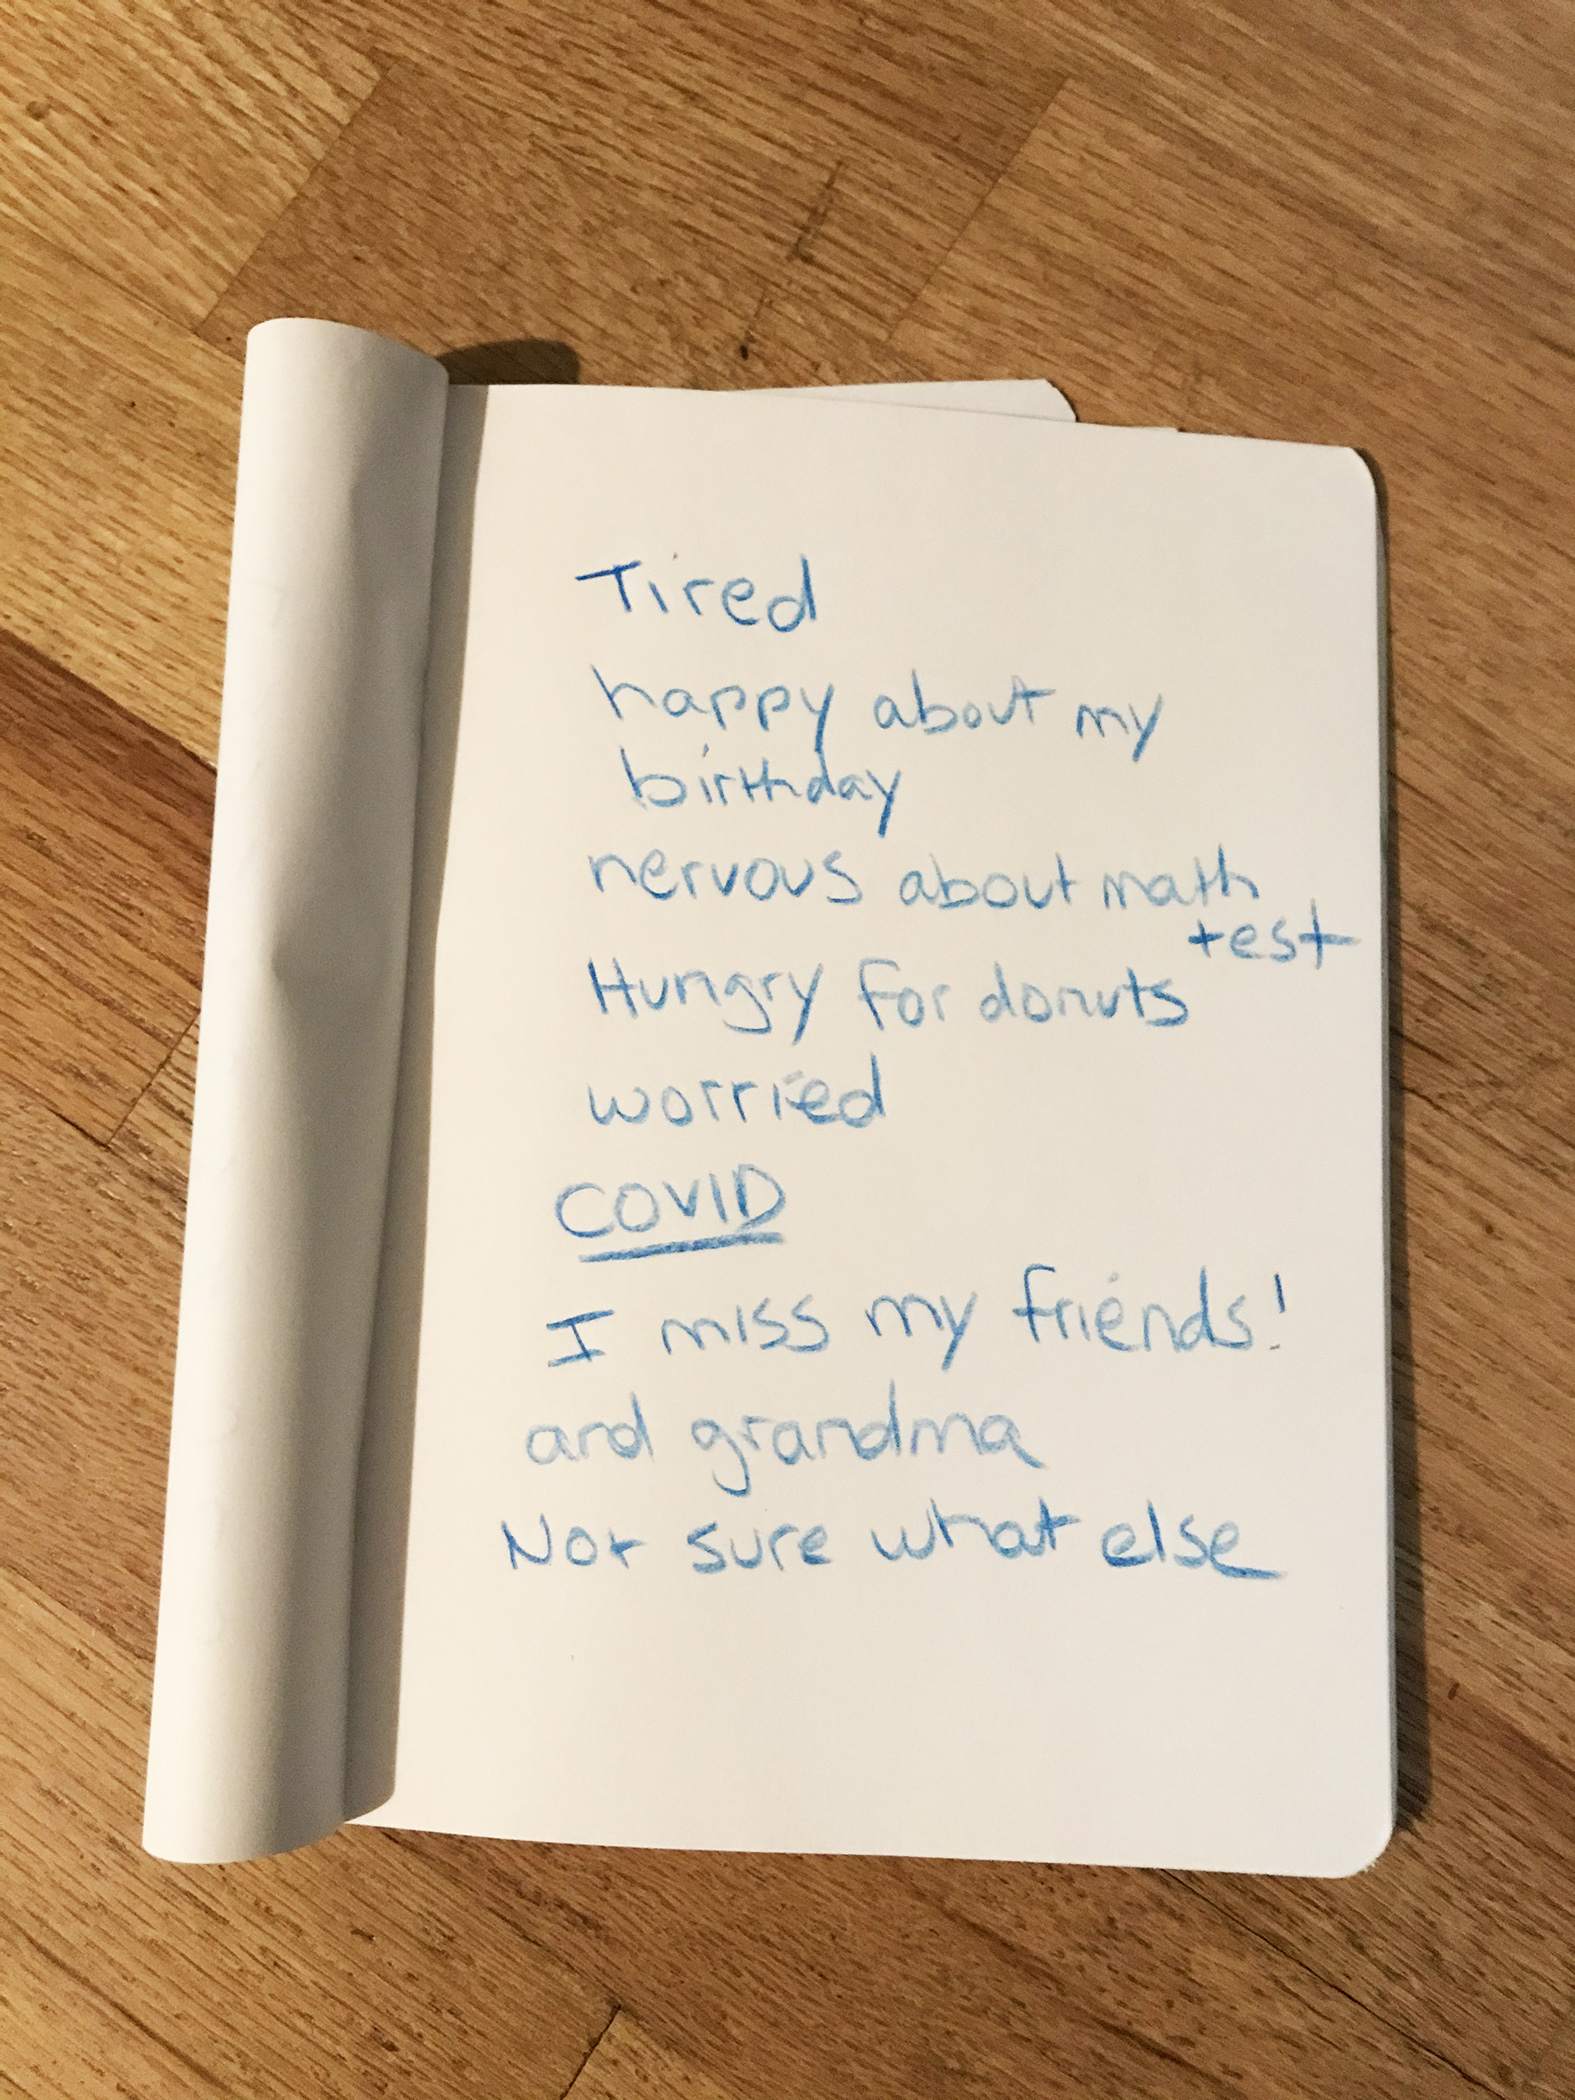 Tired
happy about my
birthday
nervous about math
test
Hungry for donuts
worried
COVID
I miss my friends!
and grandma
Not sure what else